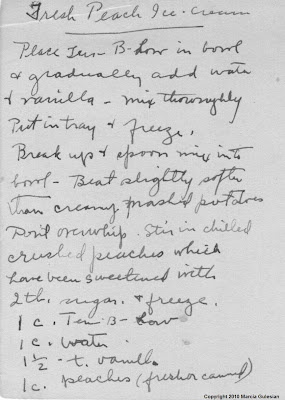 Fresh Peach Ice-cream
Place Ten-B-Low in bowl
& gradually add water
& vanilla - mix thoroughly
Put in tray & freeze.
Break up & spoon mix into
bowl - Beat slightly softer
than creamy mashed potatoes
Don't overwhip. Stir in chilled
crushed peaches which
have been sweetened with
2 tb. sugar. & freeze.
1 c. Ten-B-Low
1 c. water
1 1/2 - t. vanilla
1 c. peaches (fresh or canned)
Copyright 2010 Marcia Gulesian